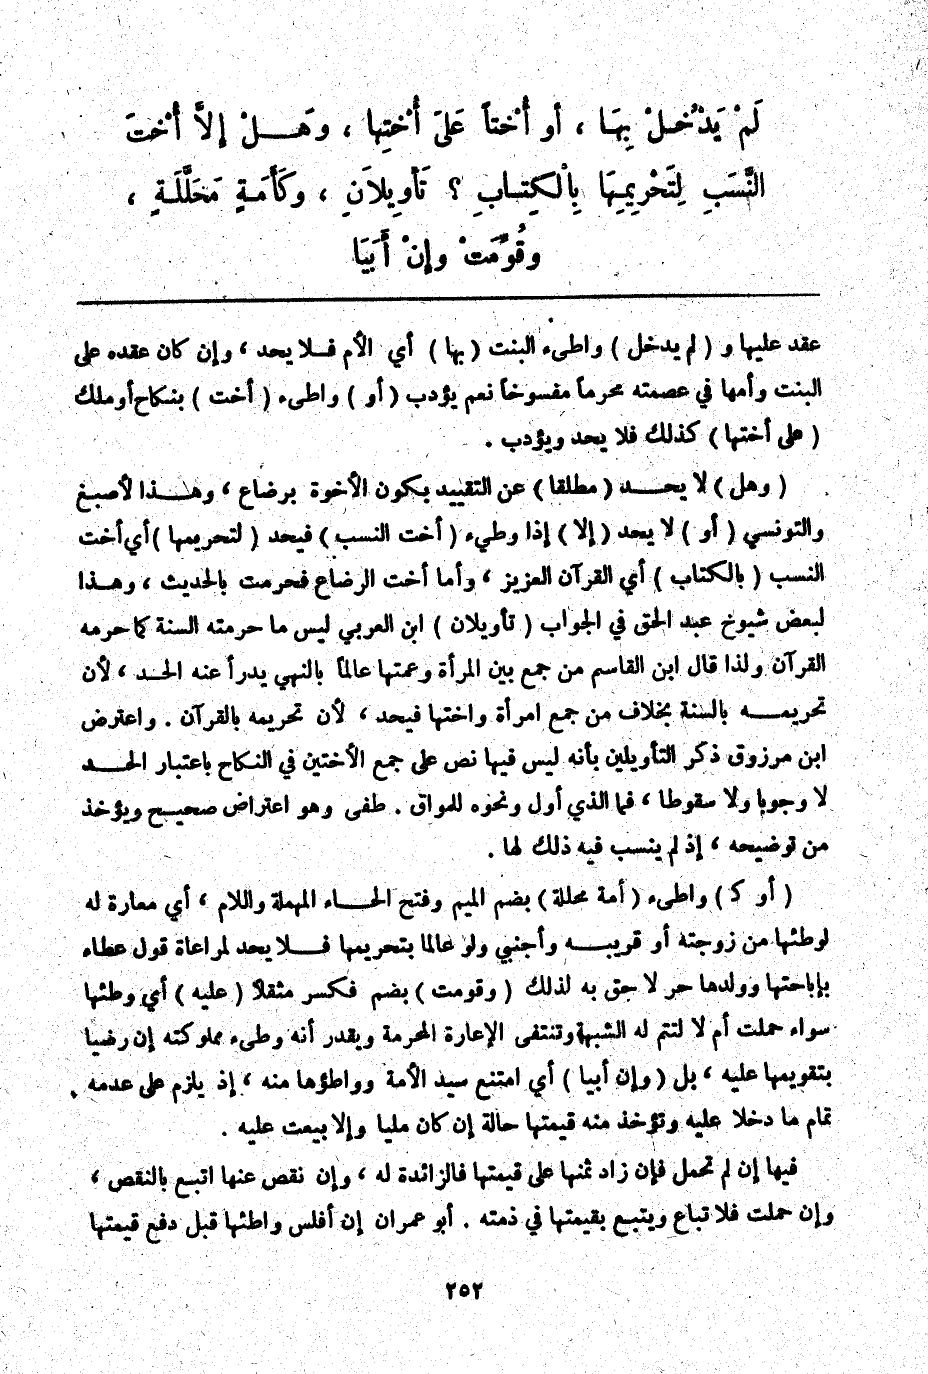 لَمْ يَدْخُلْ بِهَا ، أو أُخْتاً عَلَى أُخْتِها ، وهَـــلْ إلاَّ أُخْتَ
النَّسَبِ لِتَحْرِيمِهَا بِالْكِتابِ ؟ تَأوِيلاَنِ ، وكَأَمَةٍ مُحَلَّلَةٍ ،
وقُوِّمَتْ وإنْ أَبَيَا
عقد عليها و ( لم يدخل ) واطىء البنت ( بها ) أي الأم فـلا يحد ، وإن كان عقده على
البنت وأمها في عصمته محرماً مفسوخاً نعم يؤدب ( أو ) واطىء ( أخت ) بنكاح أو ملك
( على أختها ) كذلك فلا يحد ويؤدب .
( وهل ) لا يحـــد ( مطلقا ) عن التقييد بكون الأخوة برضاع ، وهـــذا لأصبغ
والتونسي ( أو ) لا يحد ( إلا ) إذا وطيء ( أخت النسب ) فيحد ( لتحريمها ) أي أخت
النسب ( بالكتاب ) أي القرآن العزيز ، وأما أخت الرضاع فحرمت بالحديث ، وهـذا
لبعض شيوخ عبد الحق في الجواب ( تأويلان ) ابن العربي ليس ما حرمته السنة كما حرمه
القرآن ولذا قال ابن القاسم من جمع بين المرأة وعمتها عالماً بالنهي يدرأ عنه الحـد ، لأن
تحريمـــه بالسنة بخلاف من جمع امرأة واختها فيحد ، لأن تحريمه بالقرآن . واعترض
ابن مرزوق ذكر التأويلين بأنه ليس فيها نص على جمع الأختين في النكاح باعتبار الحـــد
لا وجوبا ولا سقوطا ، فما الذي أول ونحوه للمواق . طفى وهو اعتراض صحيح ويؤخذ
من توضيحه ، إذ لم ينسب فيه ذلك لها .
( أو كـ ) واطىء ( أمة محللة ) بضم الميم وفتح الحـــاء المهملة واللام ، أي معارة له
لوطئها من زوجته أو قريبـــه وأجنبي ولو عالما بتحريمها فـــلا يحد لمراعاة قول عطاء
بإباحتها وولدها حر لا حق به لذلك ( وقومت ) بضم فكسر مثقلاً ( عليه ) أي وطئها
سواء حملت أم لا لتتم له الشبهة وتنتفى الإعارة المحرمة ويقدر أنه وطىء مملوكته إن رضيا
بتقويمها عليه ، بل ( وإن أبيا ) أي امتنع سيد الأمة وواطؤها منه ، إذ يلزم على عدمه
تمام ما دخلا عليه وتؤخذ منه قيمتها حالة إن كان مليا وإلا بيعت عليه .
فيها إن لم تحمل فإن زاد ثمنها على قيمتها فالزائدة له ، وإن نقص عنها اتبع بالنقص ،
وإن حملت فلا تباع ويتبع بقيمتها في ذمته . أبو عمران إن أفلس واطئها قبل دفع قيمتها
٢٥٢